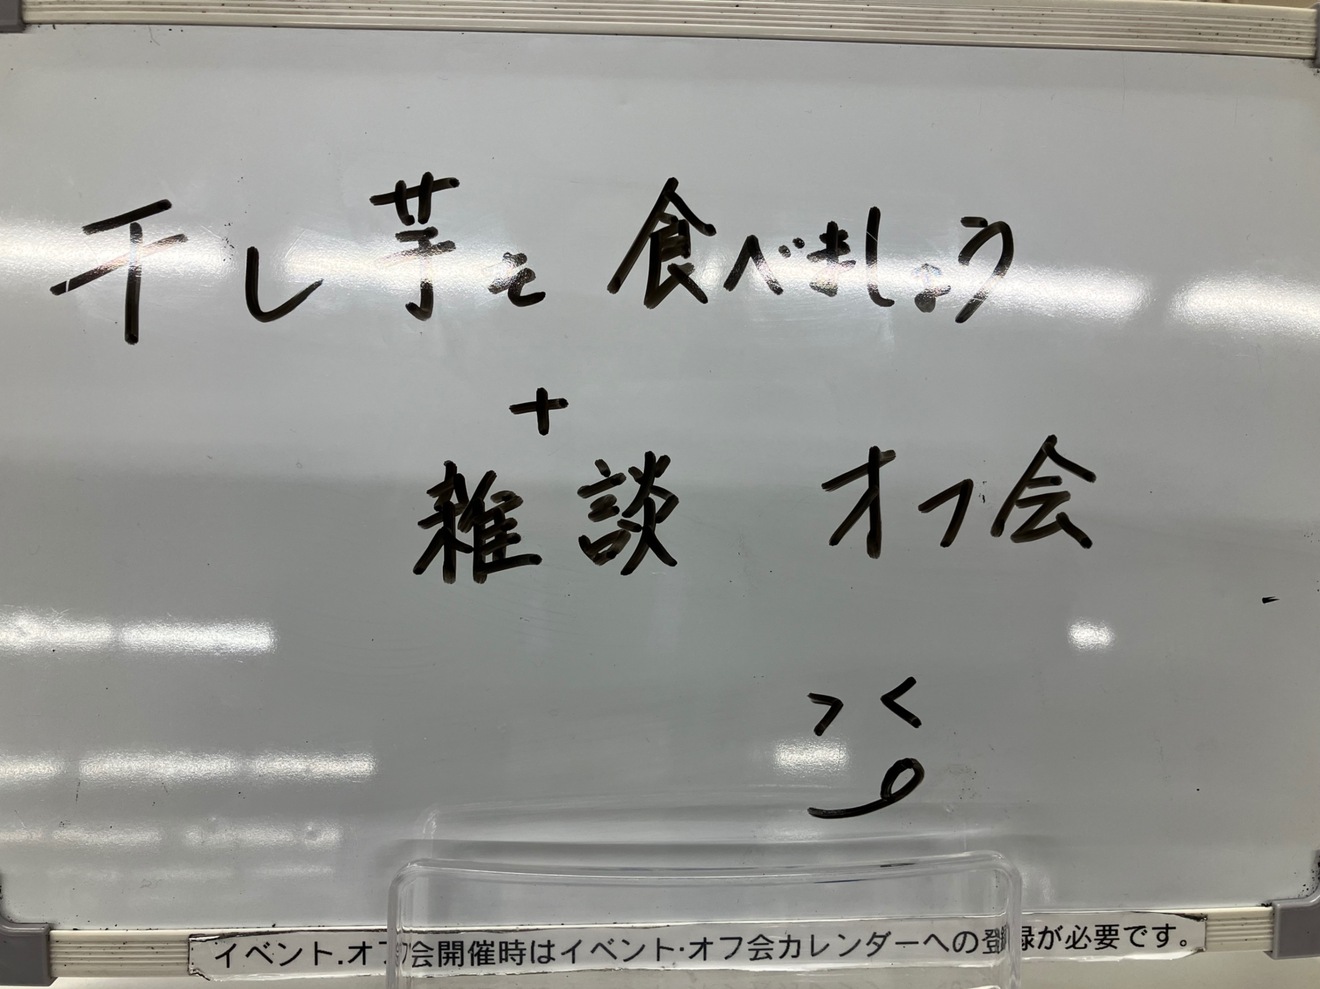 干し芋を食べましょう
+
雑談 オフ会
イベント.オフ会開催時はイベント·オフ会カレンダーへの登録が必要です。